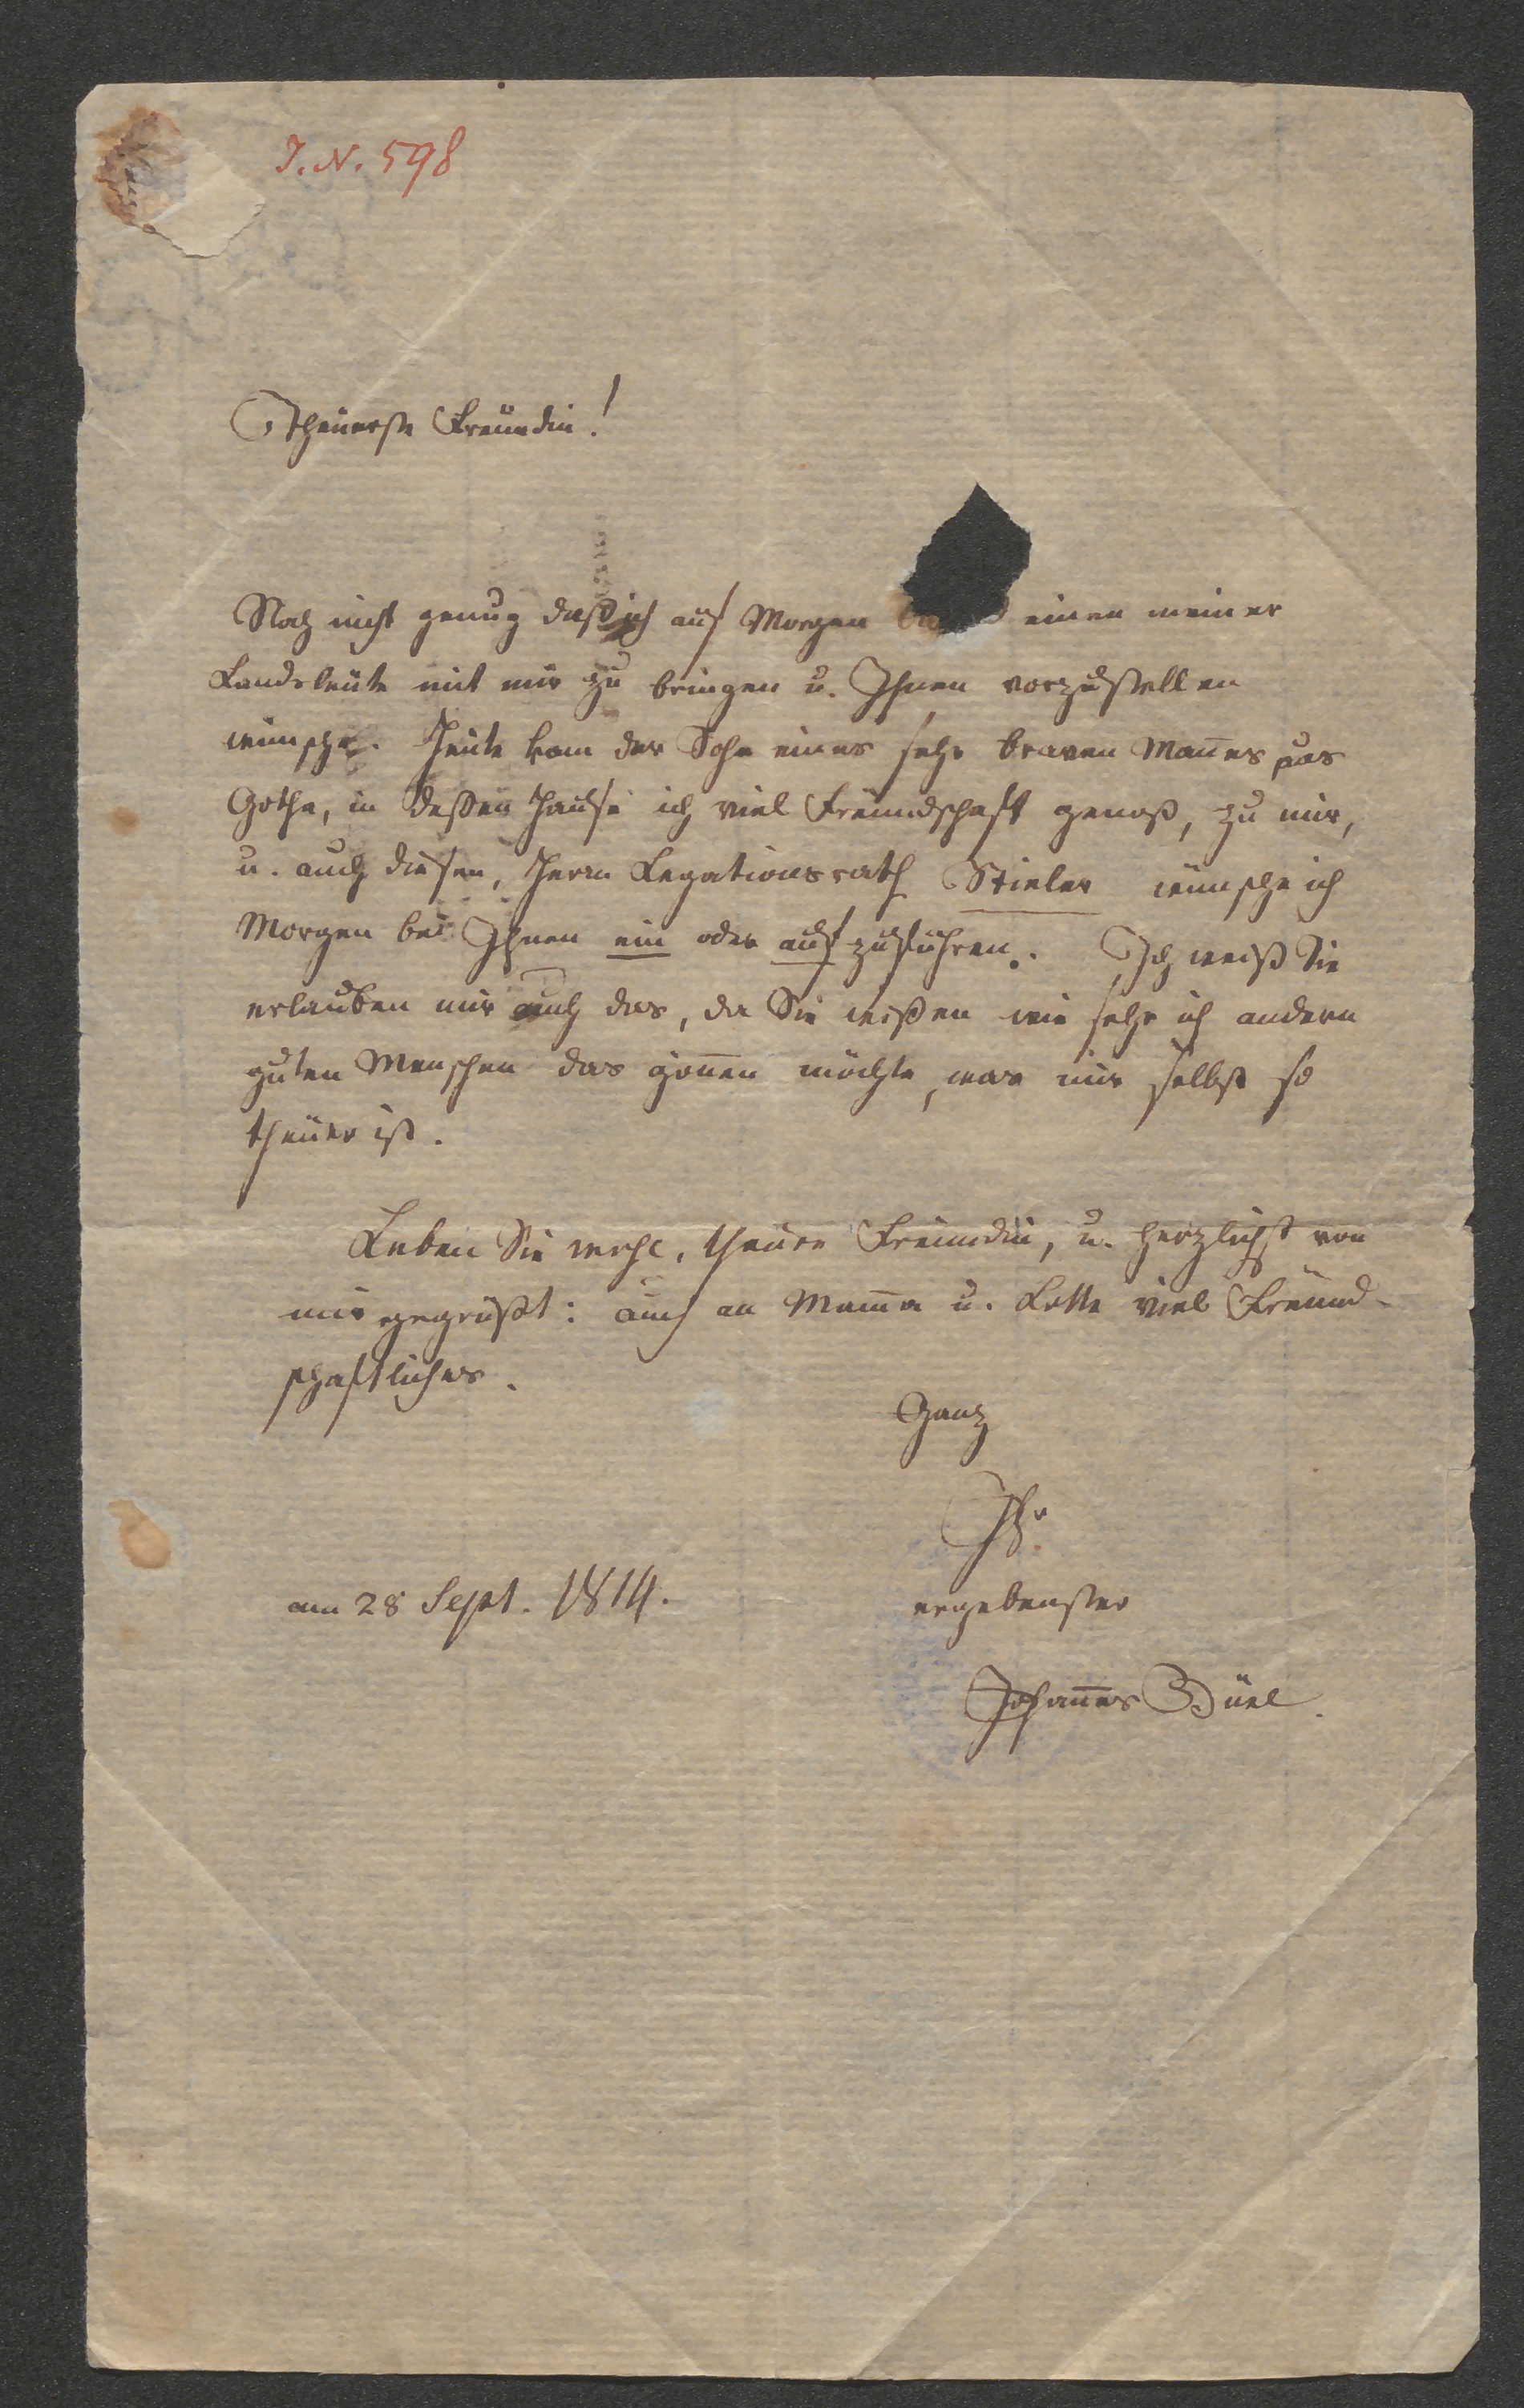 J. N. 598
Theuerste Freundin!
Noch nicht genug daß ich auf Morgen einen meiner
Landsleute mit mir zu bringen u. Ihnen vorzustellen
wünsche. Heute kam der Sohn eines sehr braven Man̄es aus
Gotha, in deßen Hause ich viel Freundschaft genoß, zu mir,
u. auch diesen, Herrn Legationsrath Stieler wünsche ich
Morgen bei Ihnen ein oder aufzuführen. Ich weiß Sie
erlauben mir auch das, da Sie wißen wie sehr ich andern
guten Menschen das gön̄en möchte, was mir selbst so
theuer ist.
Leben Sie wohl, theure Freundin, u. herzlichst von
mir gegrüßt: auch an Mam̄a u. Lotte viel Freund-
schaftliches.
Ganz
Ihr
am 28 Sept. 1814.
ergebenster
Johan̄es Büel.